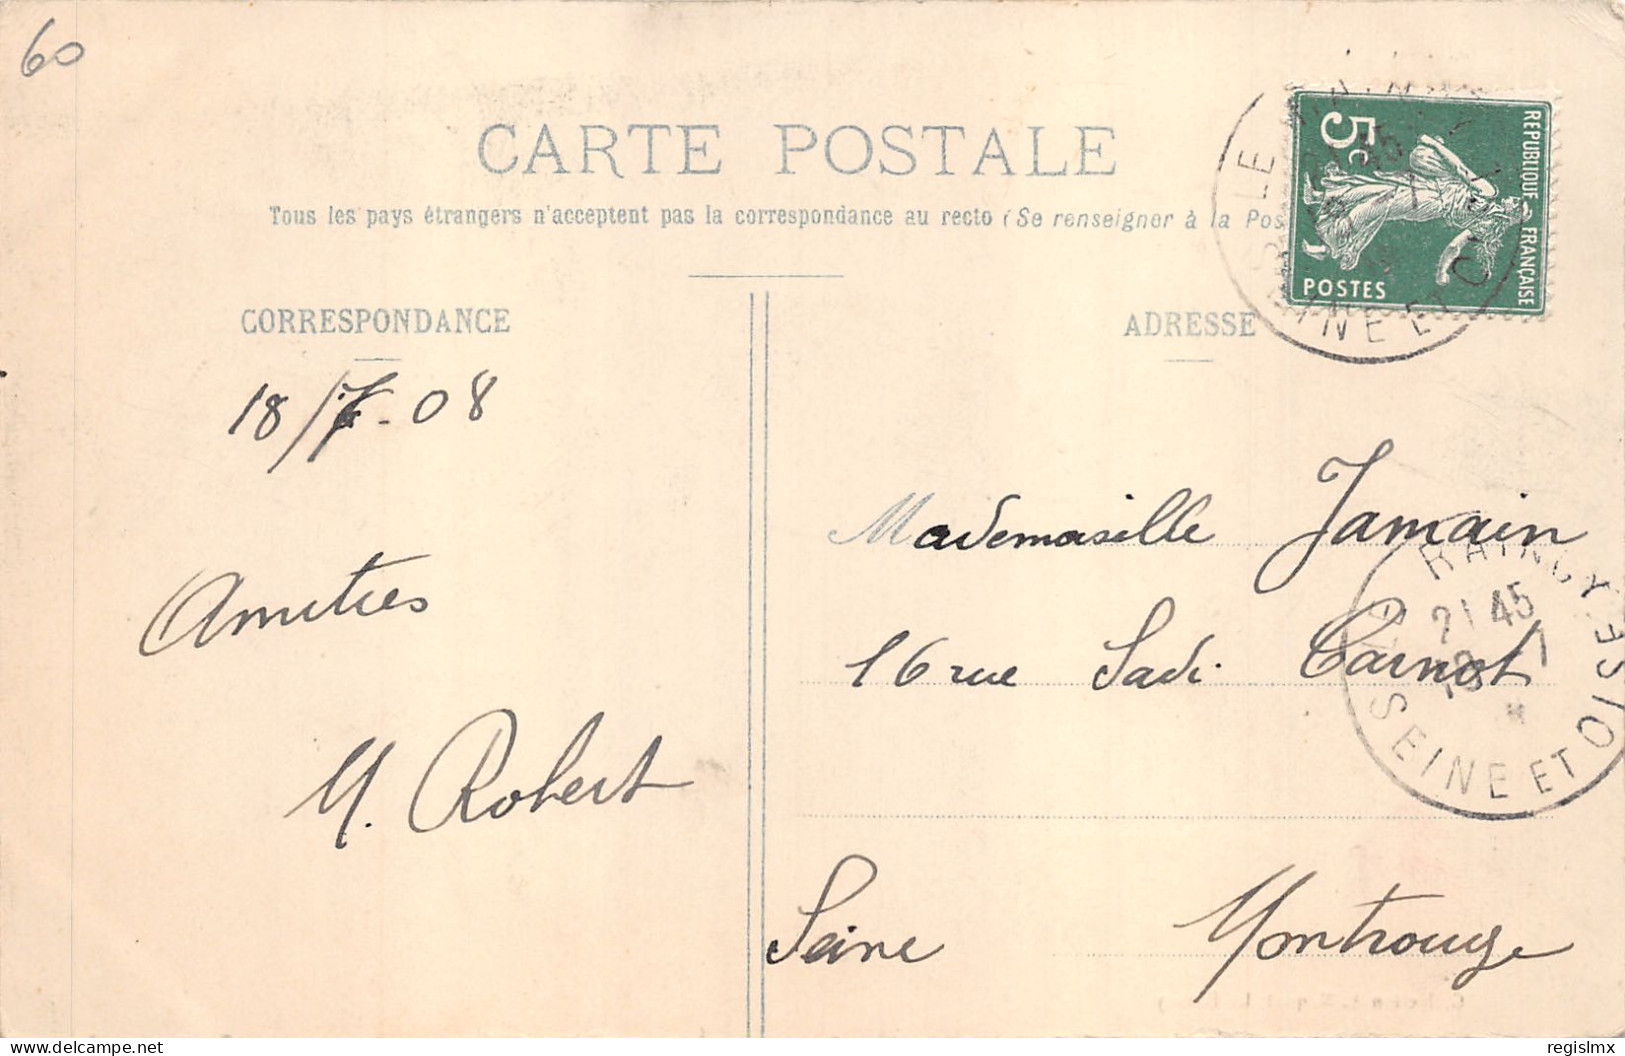 60
CARTE POSTALE
Tous les pays étrangers n'acceptent pas la correspondance au recto (Se renseigner à la Pos
REPUBLIQUE FRANÇAISE
5c
POSTES
LE
SEINE ET O
CORRESPONDANCE
ADRESSE
18/7-08
Mademoiselle Jamain
RAINCY
21 45
18 7
SEINE ET OISE
Amitiés
16 rue Sadi Carnot
M. Robert
Seine Montrouge
delcampe.net
regislmx